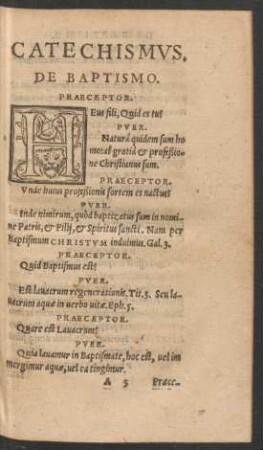 CATECHISMVS.
DE BAPTISMO.
PRAECEPTOR.
HEus fili, Quid es tu?
PVER.
Naturâ quidem sum ho
mo: at gratiâ & professio-
ne Christianus sum.
PRAECEPTOR.
Vnde huius professionis sortem es nactus?
PVER.
Inde nimirum, quòd baptizatus sum in nomi-
ne Patris, & Filij, & Spiritus sancti. Nam per
Baptismum CHRISTVM induimus. Gal. 3.
PRAECEPTOR.
Quid Baptismus est?
PVER.
Est lauacrum regenerationis. Tit. 3. Seu la-
uacrum aquæ in uerbo uitæ. Eph. 5.
PRAECEPTOR.
Quare est Lauacrum?
PVER.
Quia lauamur in Baptismate, hoc est, uel im
mergimur aquæ, uel ea tingimur.
A 5 Praec-